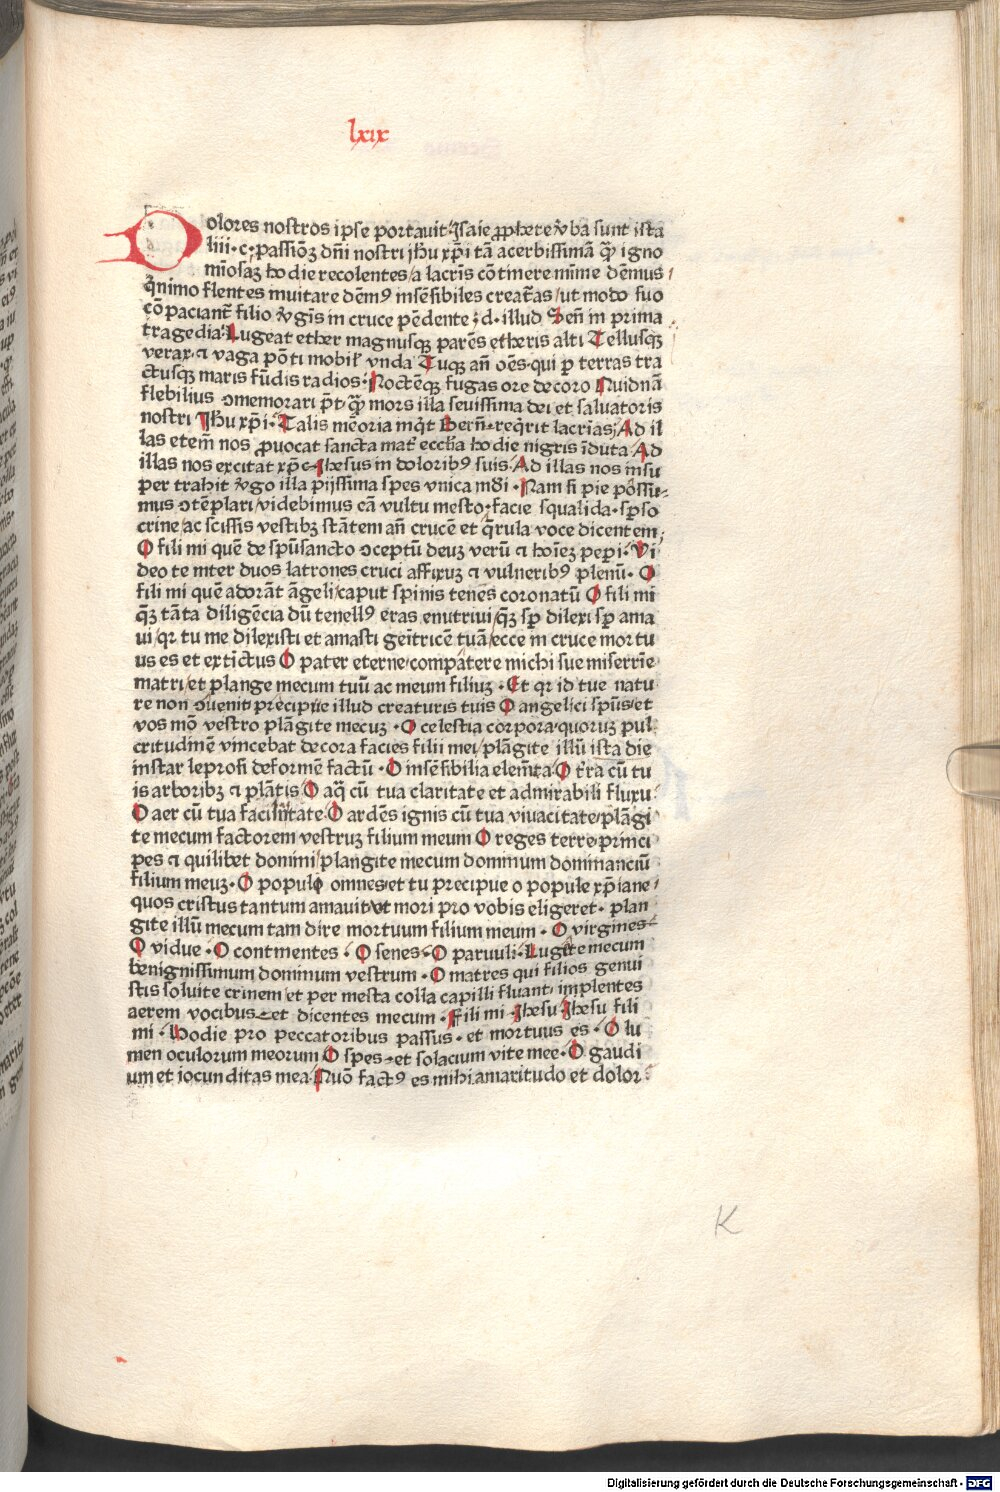 lxix
Dolores nostros ipse portauit. Isaie ꝓphete v̄ba sunt ista
liii. c. passiōꝫ dn̄i nostri ih̄u xp̄i tā acerbissimā qꝫ igno
mi̅osaꝫ hodie recolentes/a lacri̅s cōtinere mi̅me dēmus/
q̄nimo flentes inuitare dēmꝰ insēsibiles creat̄as/ut modo suo
cōpaciant̄ filio v̄gi̅s in cruce pēdente; .d. illud Sen̄ in prima
tragedia. Lugeat ether magnusqꝫ parēs etheris alti Tellusqꝫ
verax. ⁊ vaga pōti mobil̄ vnda Tuqꝫ an̄ oēs. qui ꝑ terras tra
ctusqꝫ maris fūdis radios: Noctēqꝫ fugas ore decoro Nuidnā
flebilius ↄmemorari pōt. qꝫ mors illa seuissima dei et saluatoris
nostri Ih̄u xp̄i. Talis mēoria inq̄t Bern̄. req̄rit lacri̅as; Ad il
las etem̄ nos ꝓuocat sancta mat̄ eccl̄ia hodie nigris i̅duta Ad
illas nos excitat xp̄c Ihesus in doloribꝰ suis. Ad illas nos insu
per trahit v̄go illa pijssima spes vnica mūdi. Nam si pie possu
mus ↄtēplari/videbimus eā vultu mesto. facie squalida. sp̄so
crine/ac scissis vestibꝫ stātem an̄ crucē et q̄rula voce dicentem,
O fili mi quē de spūsancto ↄceptū deuꝫ verū ⁊ hoi̅eꝫ peperi. Vi
deo te inter duos latrones cruci affixuꝫ ⁊ vulneribꝰ plenū. O
fili mi quē adorāt āgeli/caput spinis tenēs coronatū O fili mi
q̄ꝫ tāta diligēcia dū tenellꝰ eras enutriui/q̄ꝫ sꝑ dilexi sꝑ ama
ui/qr tu me dilexisti et amasti geitricē tuā/ecce in cruce mortu
us es et exti̅ctus O pater eterne/compātere michi sue miserri̅e
matri/et plange mecum tuū ac meum filiuꝫ. Et qr id tue natu
re non ↄuenit/precipue illud creaturis tuis O angelici spūs/et
vos mō vestro plāgite mecuꝫ. O celestia corpora/quoruꝫ pul
critudinē vincebat decora facies filii mei/plāgite illū ista die
instar leprosi deformē factū. O insēsibilia elem̄ta O t̄ra cū tu
is arboribꝫ ⁊ plātis O aq̄ cū tua claritate et admirabili fluxu
O aer cū tua facilitate. O ardēs ignis cū tua viuacitate/plāgi
te mecum factorem vestruꝫ filium meum O reges terre/princi
pes ⁊ quilibet domini/plangite mecum dominum dominanciū
filium meuꝫ. O populi omnes/et tu precipue o popule xp̄iane/
quos cristus tantum amauit/vt mori pro vobis eligeret. plan
gite illū mecum tam dire mortuum filium meum. O virgines
O vidue. O continentes. O senes. O paruuli. Lugete mecum
benignissimum dominum vestrum. O matres qui filios genui
stis soluite crinem/et per mesta colla capilli fluant/implentes
aerem vocibus. et dicentes mecum. Fili mi. Ihesu Ihesu fili
mi. Hodie pro peccatoribus passus. et mortuus es. O lu
men oculorum meorum O spes. et solacium vite mee. O gaudi
um et iocunditas mea. Nuō factꝰ es mihi amaritudo et dolor
K
Digitalisierung gefördert durch die Deutsche Forschungsgemeinschaft - DFG